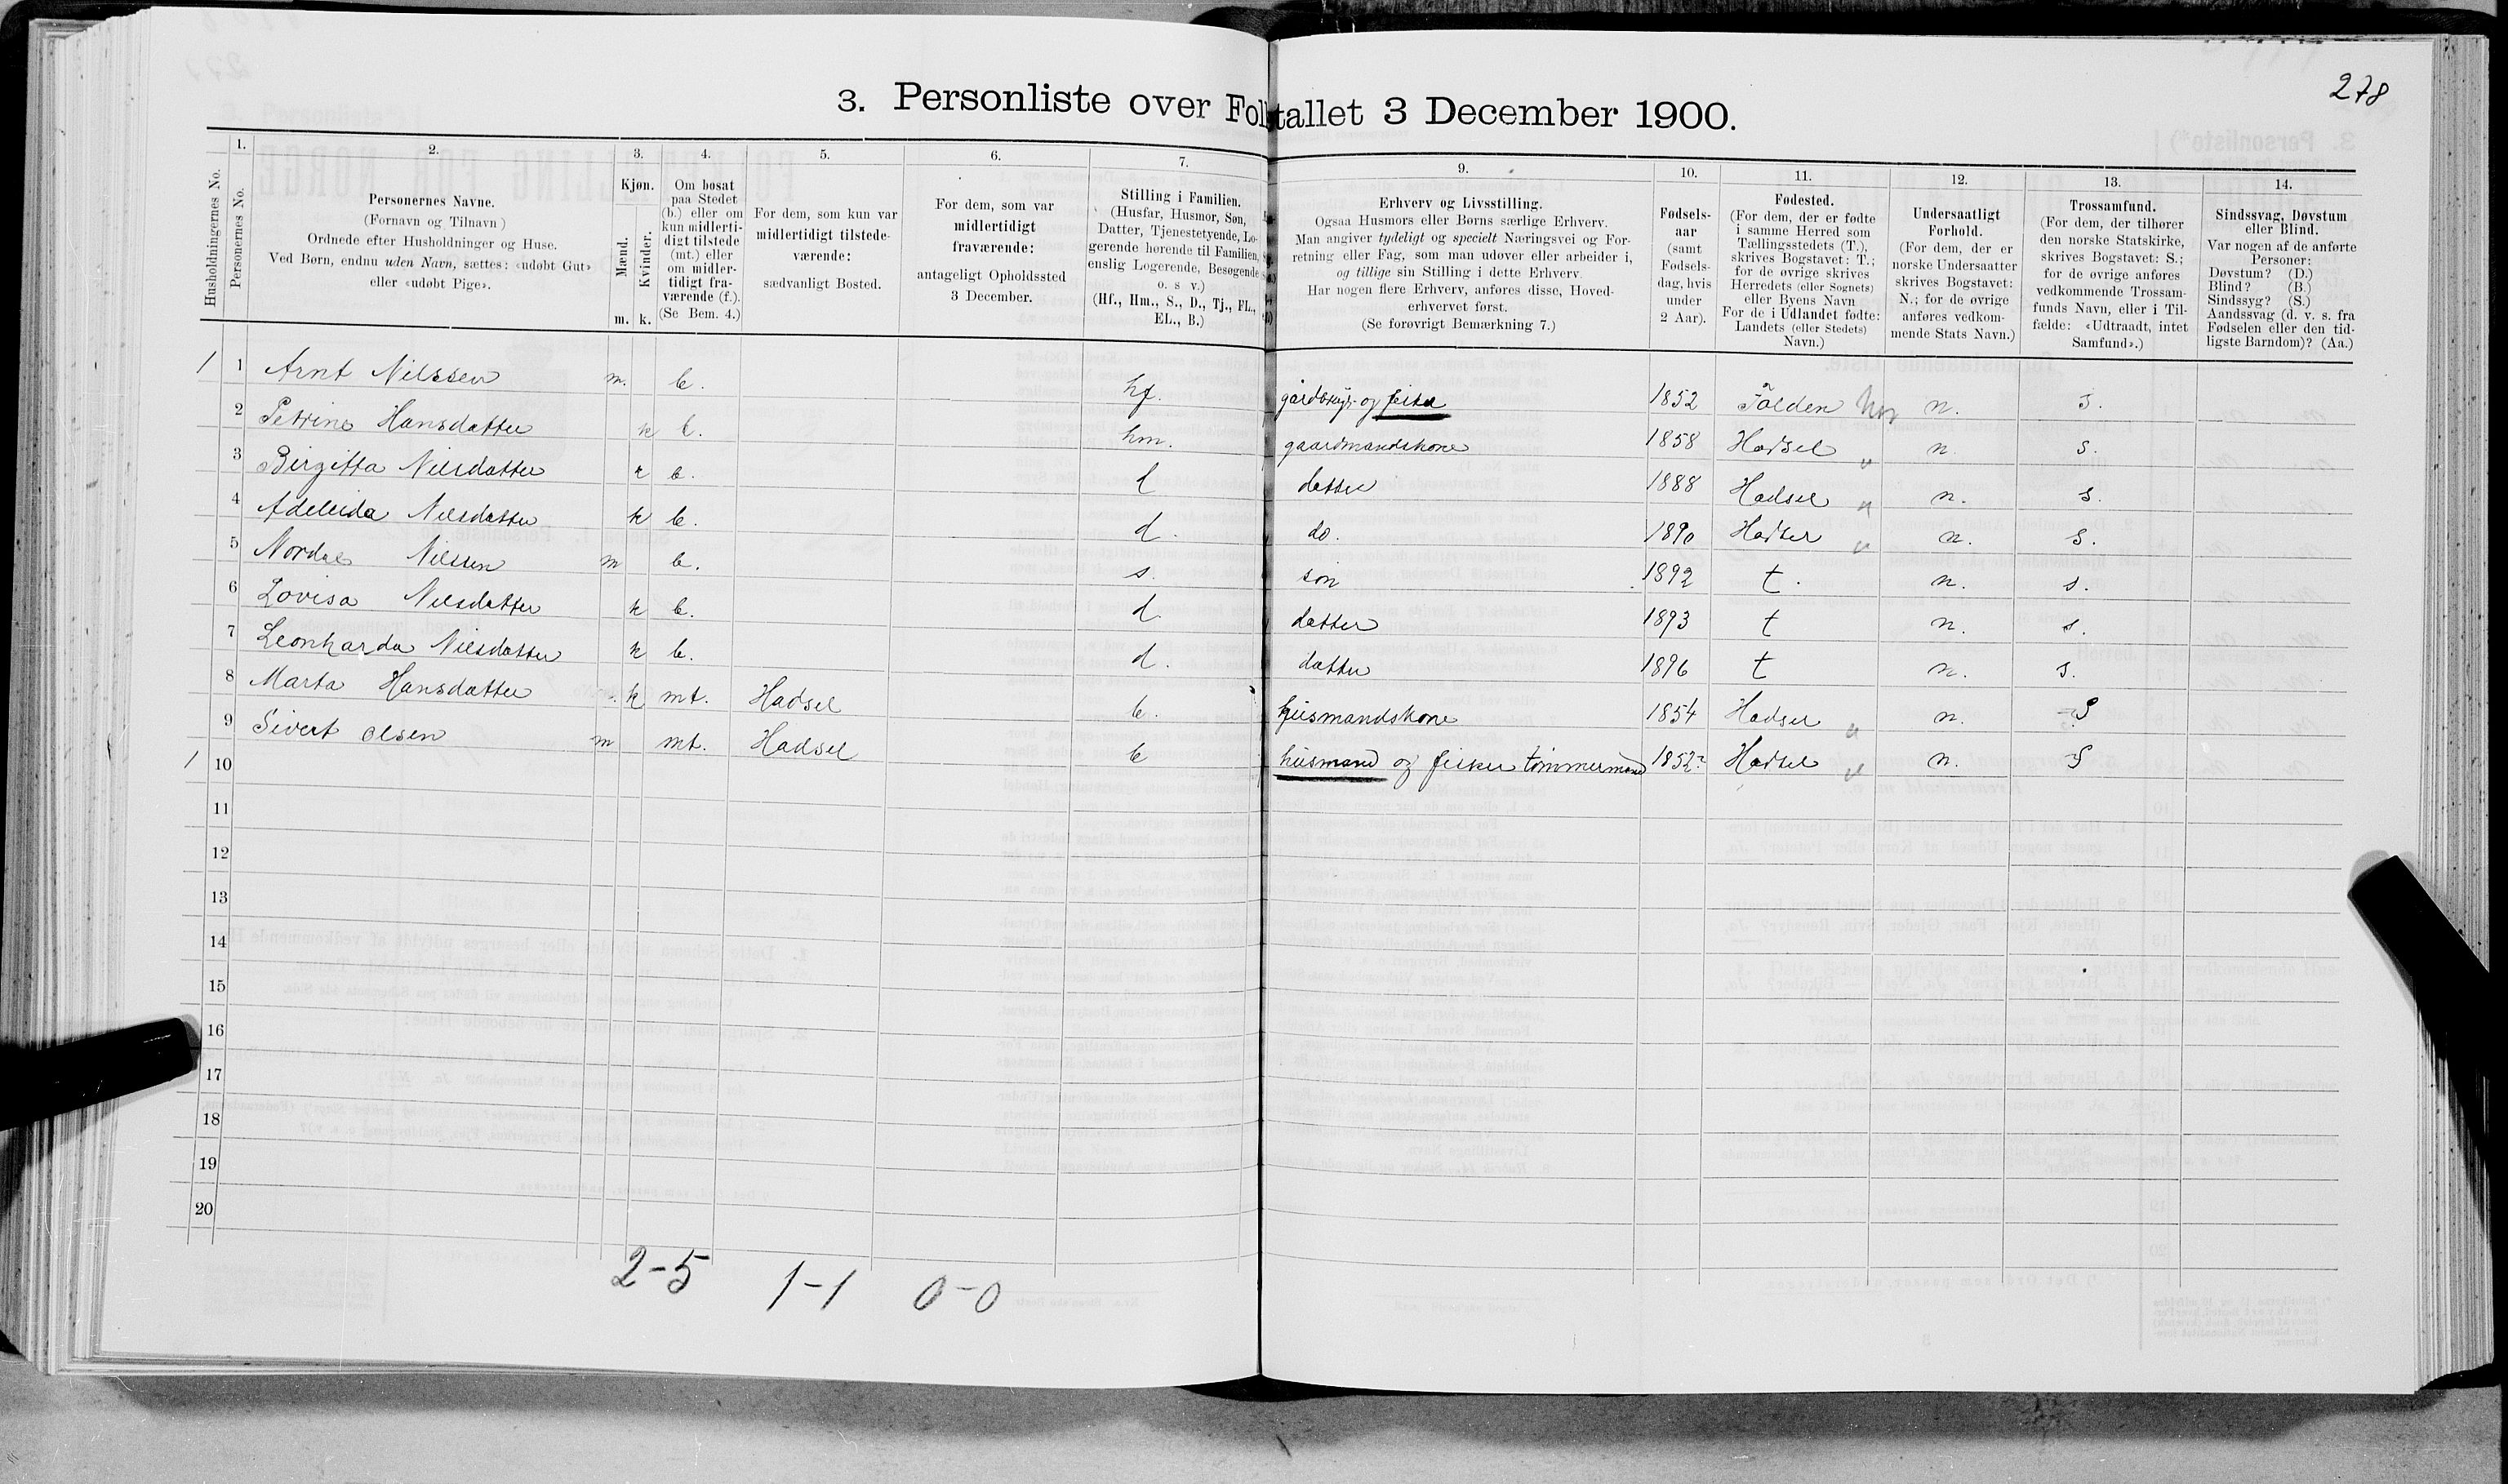 278
3. Personliste over Folketallet 3 December 1900.
Husholdningernes No.
1.
Personernes No.
2.
Personernes Navne.
(Fornavn og Tilnavn)
Ordnede efter Husholdninger og Huse.
Ved Børn, endnu uden Navn, sættes: «udøbt Gut»
eller «udøbt Pige».
3.
Kjøn.
Mænd.
Kvinder.
m. k.
4.
Om bosat
paa Stedet
(b.) eller om
kun midlerti-
digt tilstede
(mt.) eller
om midler-
tidigt fra-
værende (f.).
(Se Bem. 4.)
5.
For dem, som kun var
midlertidigt tilstede-
værende:
sædvanligt Bosted.
6.
For dem, som var
midlertidigt
fraværende:
antageligt Opholdssted
3 December.
7.
Stilling i Familien.
(Husfar, Husmor, Søn,
Datter, Tjenestetyende, Lo-
gerende hørende til Familien,
enslig Logerende, Besøgende
o. s v.)
(Hf., Hm., S., D., Tj., FL.,
EL., B.)
9.
Erhverv og Livsstilling.
Ogsaa Husmors eller Børns særlige Erhverv.
Man angiver tydeligt og specielt Næringsvei og For-
retning eller Fag, som man udøver eller arbeider i,
og tillige sin Stilling i dette Erhverv.
Har nogen flere Erhverv, anføres disse, Hoved-
erhvervet først.
(Se forøvrigt Bemærkning 7.)
10.
Fødsels-
aar
(samt
Fødsels-
dag, hvis
under
2 Aar).
11.
Fødested.
(For dem, der er fødte
i samme Herred som
Tællingsstedets (T.),
skrives Bogstavet: T.;
for de øvrige skrives
Herredets (eller Sognets)
eller Byens Navn
For de i Udlandet fødte:
Landets (eller Stedets)
Navn.)
12.
Undersaatligt
Forhold.
(For dem, der er
norske Undersaatter
skrives Bogstavet:
N.; for de øvrige
anføres vedkom-
mende Stats Navn.)
13.
Trossamfund.
(For dem, der tilhører
den norske Statskirke,
skrives Bogstavet: S.;
for de øvrige anføres
vedkommende Trossam-
funds Navn, eller i Til-
fælde: «Udtraadt, intet
Samfund».)
14.
Sindssvag, Døvstum
eller Blind.
Var nogen af de anførte
Personer:
Døvstum? (D.)
Blind? (B.)
Sindssyg? (S.)
Aandssvag (d. v. s. fra
Fødselen eller den tid-
ligste Barndom)? (Aa.)
1 1 Arnt Nilssen m. b. hf. gårdbrug. og fisker 1852 Folden n. s.
2 Petrine Hansdatter k b. hm. gaardmandskone 1858 Hadsel " n s.
3 Birgitta Nilsdatter k b. d datter 1888 Hadsel " n. s.
4 Adeleida Nilsdatter k b. d. do. 1890 Hadsel " n. s.
5 Nordal Nilssen m b. s. søn 1892 t. n. s.
6 Lovisa Nilsdatter k b. d. datter 1893 t n. s.
7 Leonharda Nilsdatter k b. d. datter 1896 t n. s.
8 Marta Hansdatter k mt. Hadsel b. husmandskone 1854 Hadsel " n. S
9 Sivert Olsen m mt. Hadsel b husmand og fisker tømmermand 1852 Hadsel " n. S
1 10
11
12
13
14
15
16
17
18
19
20
2-5 1-1 0-0